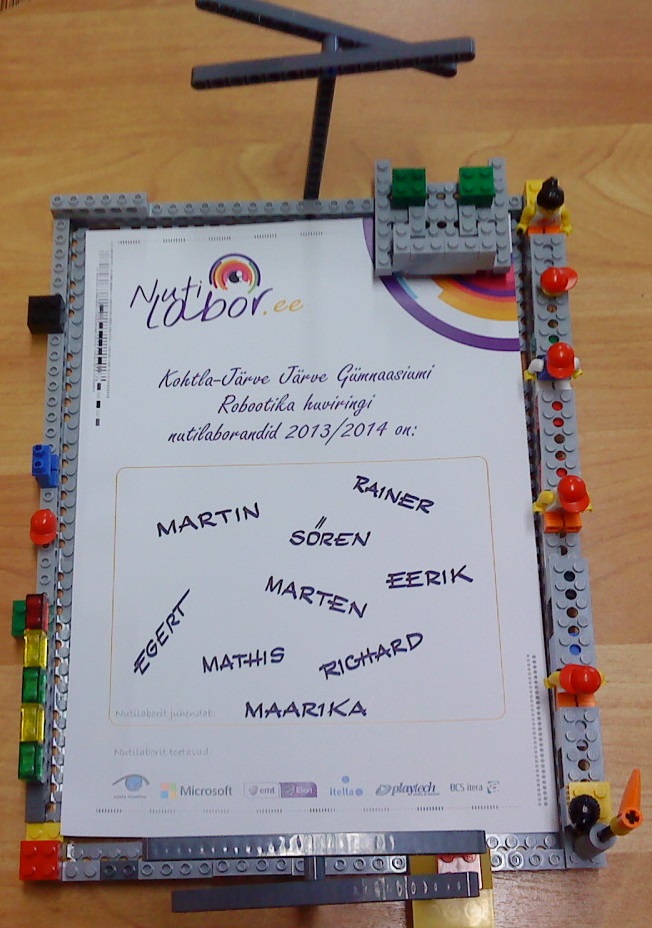 Nuti
labor.ee
Kohtla-Järve Järve Gümnaasiumi
Robootika huviringi
nutilaborandid 2013/2014 on:
RAINER
MARTIN
SÖREN
EERIK
MARTEN
EGERT
MATHIS
RICHARD
Nutilaborit juhendab: MAARIKA
Nutilaborit toetavad:
Microsoft
emt Elion
itella
playtech
BCS itera